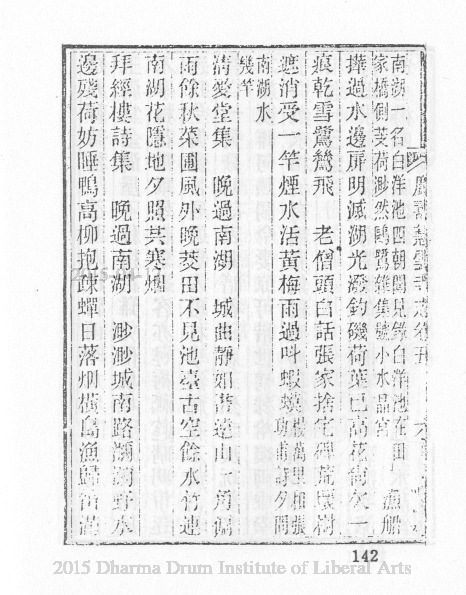 廣壽慧雲寺志卷五 六
南湖一名白洋池四朝聞見錄白洋池在
家橋側芰荷渺然鷗鷺雜集號小水晶宮
漁船
撻過水邊扉明滅湖光潑釣磯荷葉已高花尚欠一
痕乾雪鷺鷥飛 老僧頭白話張家捨宅禪荒壞樹
遮消受一竿煙水活黃梅雨過叫蝦蟆
樓萬里和張
功甫詩夕聞
南湖水
幾竿
清愛堂集 晚過南湖 城曲靜如畫遠山一角偏
雨餘秋菜圃風外晚菱田不見池臺古空餘水竹連
南湖花隱地夕照共寒烟
拜經樓詩集 晚過南湖 渺渺城南路瀰瀰野水
邊殘荷妨睡鴨高柳抱疎蟬日落烟橫島漁歸笛滿
142
2015 Dharma Drum Institute of Liberal Arts